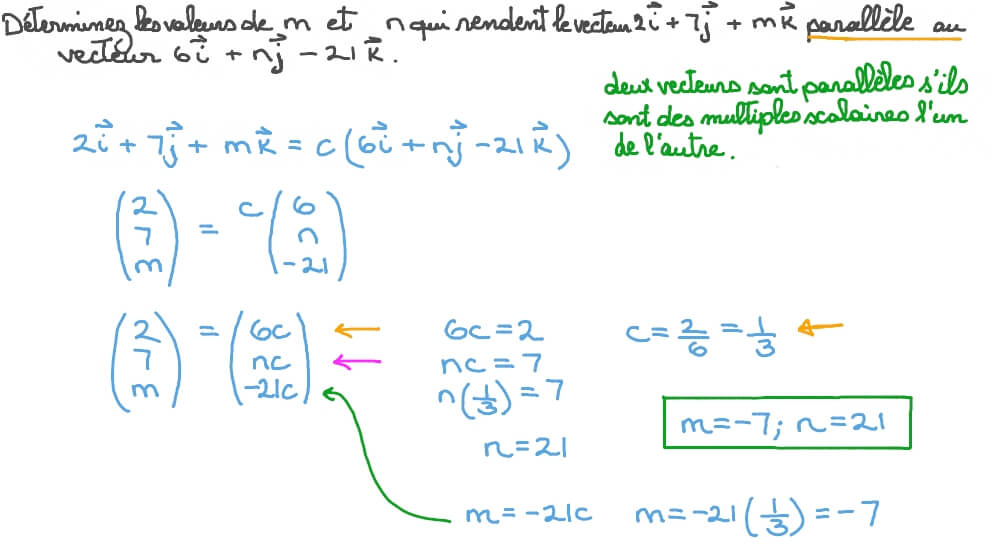 Déterminez les valeurs de m et n qui rendent le vecteur 2i⃗ + 7j⃗ + mk⃗ parallèle au
vecteur 6i⃗ + nj⃗ - 21k⃗.
deux vecteurs sont parallèles s'ils
sont des multiples scalaires l'un
de l'autre.
2i⃗ + 7j⃗ + mk⃗ = c(6i⃗ + nj⃗ - 21k⃗)
(2) = c(6)
(7) (n)
(m) (-21)
(2) = (6c) ← 6c = 2 c = 2/6 = 1/3 ←
(7) (nc) ← nc = 7
(m) (-21c) n(1/3) = 7
m = -7; n = 21
n = 21
m = -21c m = -21(1/3) = -7